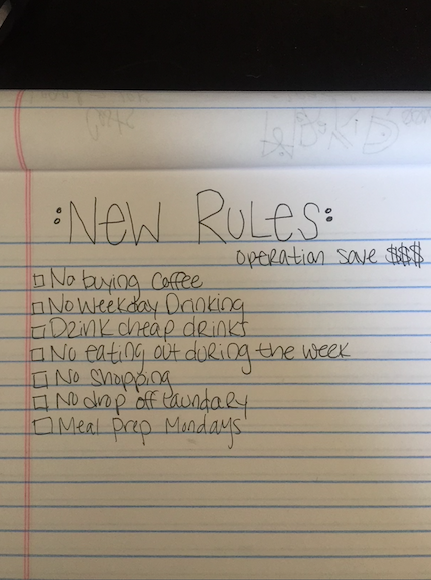 :New Rules:
operation save $$$
No buying Coffee
No Weekday Drinking
Drink cheap drinks
No eating out during the week
No Shopping
No drop off Laundary
Meal Prep Mondays